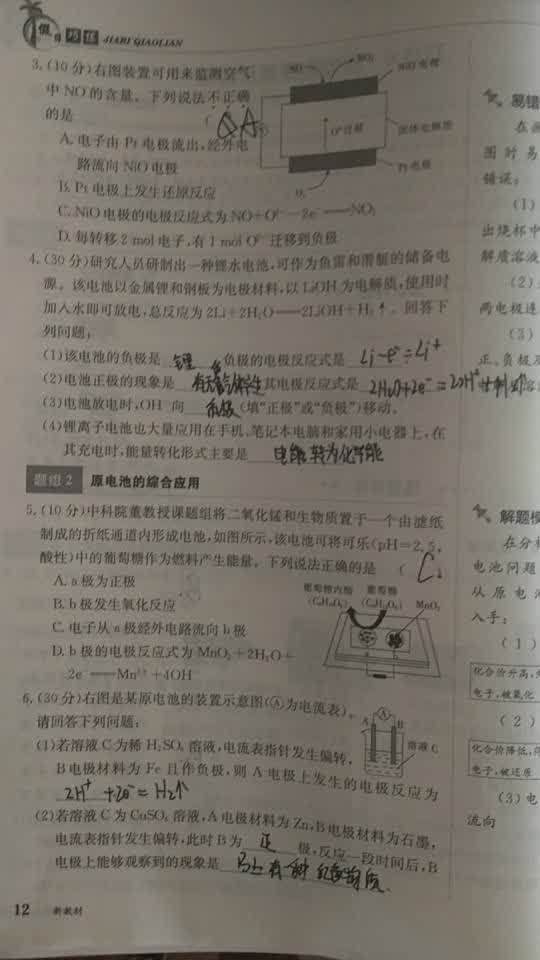 假日巧练 JIARI QIAOLIAN
3.(10分)右图装置可用来监测空气
中NO的含量。下列说法不正确
的是 ( A
A.电子由Pt电极流出,经外电
路流向NiO电极
B.Pt电极上发生还原反应
C.NiO电极的电极反应式为NO+O²⁻-2e⁻══NO₂
D.每转移2 mol电子,有1 mol O²⁻迁移到负极
NO
NO₂
NiO电极
O²⁻迁移
固体电解质
Pt电极
O₂
4.(30分)研究人员研制出一种锂水电池,可作为鱼雷和潜艇的储备电
源。该电池以金属锂和钢板为电极材料,以LiOH为电解质,使用时
加入水即可放电,总反应为2Li+2H₂O══2LiOH+H₂↑。回答下
列问题:
(1)该电池的负极是 锂 负极的电极反应式是 Li-e⁻=Li⁺
(2)电池正极的现象是 有气体产生 其电极反应式是 2H₂O+2e⁻=2OH⁻+H₂↑
(3)电池放电时,OH⁻向 负极 (填“正极”或“负极”)移动。
(4)锂离子电池也大量应用在手机、笔记本电脑和家用小电器上,在
其充电时,能量转化形式主要是 电能转为化学能
题组2 原电池的综合应用
5.(10分)中科院董教授课题组将二氧化锰和生物质置于一个由滤纸
制成的折纸通道内形成电池,如图所示,该电池可将可乐(pH=2.5,
酸性)中的葡萄糖作为燃料产生能量。下列说法正确的是 ( C
A.a极为正极
B.b极发生氧化反应
C.电子从a极经外电路流向b极
D.b极的电极反应式为MnO₂+2H₂O+
2e⁻══Mn²⁺+4OH⁻
葡萄糖内酯 葡萄糖
(C₆H₁₀O₆) (C₆H₁₂O₆) MnO₂
6.(30分)右图是某原电池的装置示意图(Ⓐ为电流表)。
请回答下列问题:
(1)若溶液C为稀H₂SO₄溶液,电流表指针发生偏转,
B电极材料为Fe且作负极,则A电极上发生的电极反应为
2H⁺+2e⁻=H₂↑
A
A B
溶液C
(2)若溶液C为CuSO₄溶液,A电极材料为Zn,B电极材料为石墨,
电流表指针发生偏转,此时B为 正 极,反应一段时间后,B
电极上能够观察到的现象是 B上有一种红色物质
12 新教材
易错
在原
图时易
错误:
(1)
出烧杯中
解质溶液
(2)
两电极连
(3)
正、负极
解题模
在分
电池问题
从原电
入手:
(1)
化合价升高,失
电子,被氧化
(2)
化合价降低,得
电子,被还原
(3)电
流向